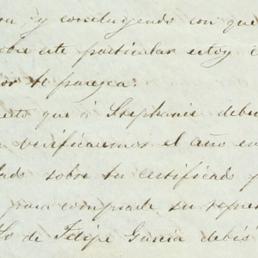 y concluyendo con que
sobre este particular estoy
te parezca:
que á Stephanie debe
verificaremos el año en
sobre tu certificado y
para comprarte su
de Felipe Garcia debes